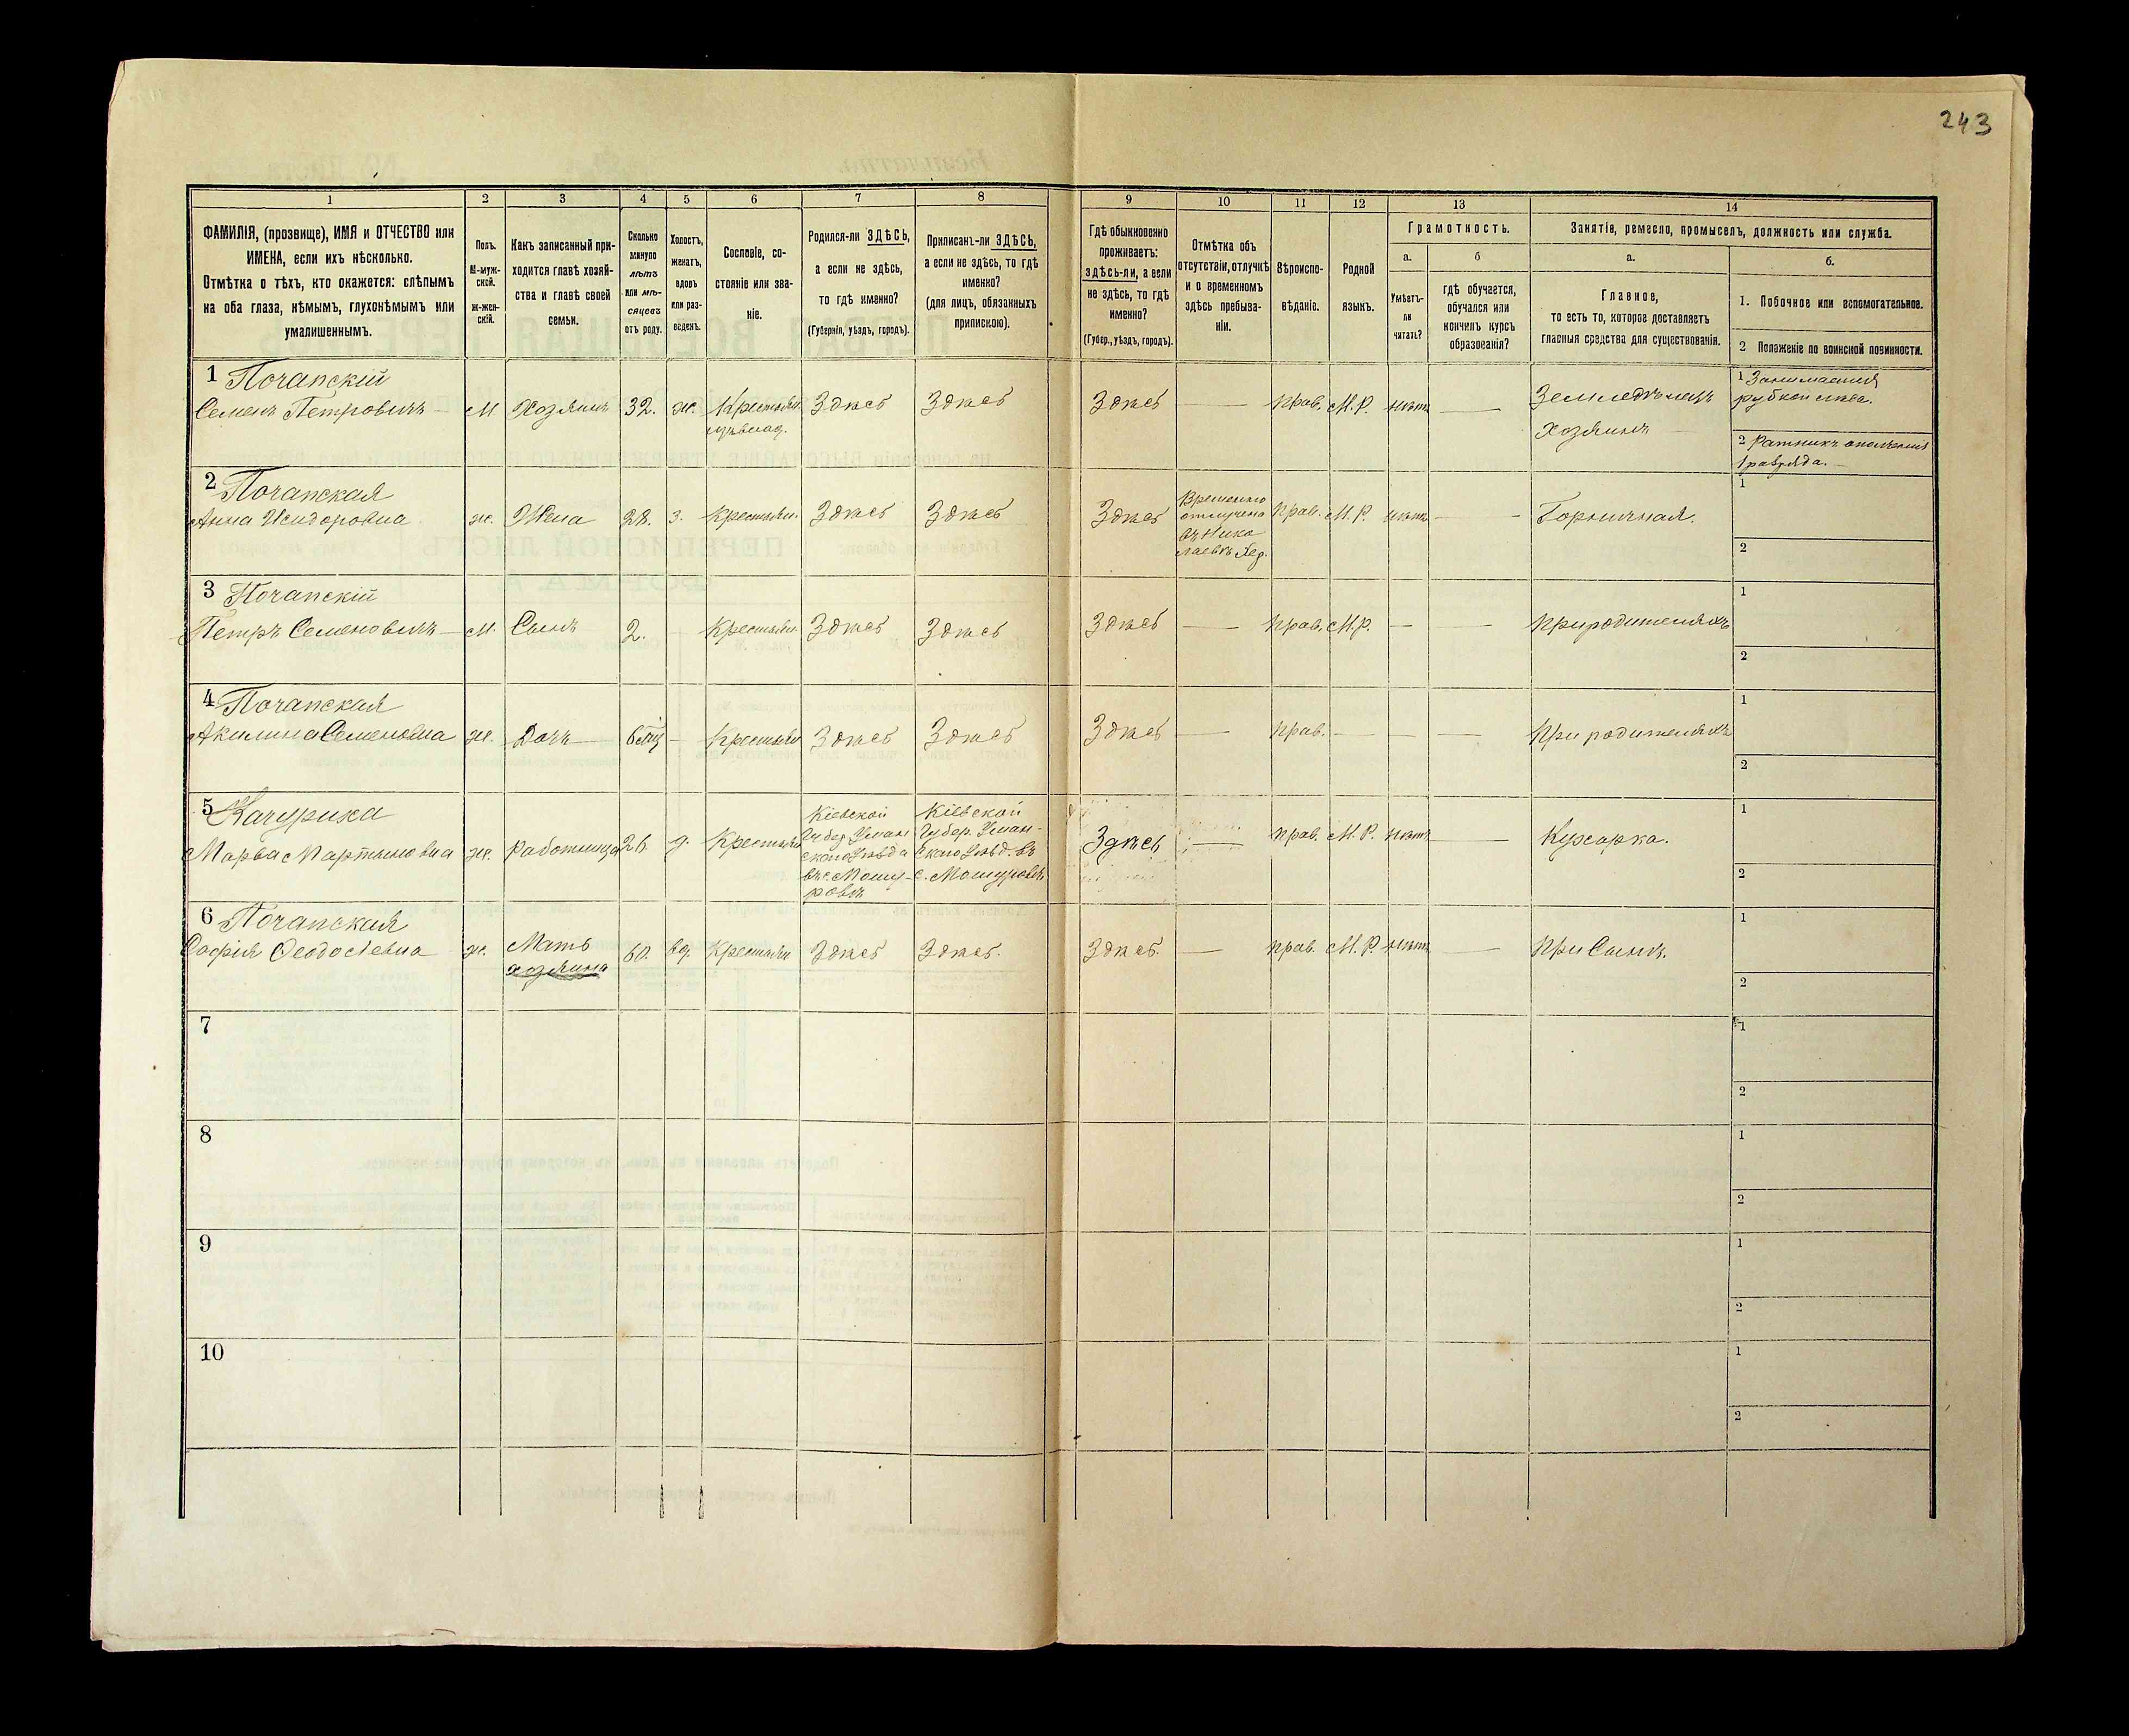 243
1 2 3 4 5 6 7 8 9 10 11 12 13 14
ФАМИЛІЯ, (прозвище), ИМЯ и ОТЧЕСТВО или
ИМЕНА, если ихъ нѣсколько.
Отмѣтка о тѣхъ, кто окажется: слѣпымъ
на оба глаза, нѣмымъ, глухонѣмымъ или
умалишеннымъ.
Полъ.
М-муж-
ской.
Ж-жен-
скій.
Какъ записанный при-
ходится главѣ хозяй-
ства и главѣ своей
семьи.
Сколько
минуло
лѣтъ
или мѣ-
сяцевъ
отъ роду.
Холостъ,
женатъ,
вдовъ
или раз-
веденъ.
Сословіе, со-
стояніе или зва-
ніе.
Родился-ли ЗДѢСЬ,
а если не здѣсь,
то гдѣ именно?
(Губернія, уѣздъ, городъ).
Приписанъ-ли ЗДѢСЬ,
а если не здѣсь, то гдѣ
именно?
(для лицъ, обязанныхъ
припискою).
Гдѣ обыкновенно
проживаетъ:
здѣсь-ли, а если
не здѣсь, то гдѣ
именно?
(Губер., уѣздъ, городъ).
Отмѣтка объ
отсутствіи, отлучкѣ
и о временномъ
здѣсь пребыва-
ніи.
Вѣроиспо-
вѣданіе.
Родной
языкъ.
Грамотность.
а.
Умѣетъ-
ли
читать?
б
гдѣ обучается,
обучался или
кончилъ курсъ
образованія?
Занятіе, ремесло, промыселъ, должность или служба.
а.
Главное,
то есть то, которое доставляетъ
главныя средства для существованія.
б.
1. Побочное или вспомогательное.
2 Положеніе по воинской повинности.
1 Почапскій
Семенъ Петровичъ
м
Хозяинъ
32.
ж.
Крестьян.
Здѣсь
Здѣсь
Здѣсь
—
прав.
М.Р.
нѣтъ
—
Земледѣлецъ
Хозяинъ
1 Занимается
рубкой лѣса.
2 Ратникъ ополченія
1 разряда.
2 Почапская
Анна Исидоровна
ж.
Жена
28.
з.
Крестьян.
Здѣсь
Здѣсь
Здѣсь
Временно
отлучена
въ Нико
лаевъ Хер.
прав.
М.Р.
нѣтъ
—
Горничная.
1
2
3 Почапскій
Петръ Семеновичъ
м.
Сынъ
2.
Крестьян.
Здѣсь
Здѣсь
Здѣсь
—
прав.
М.р.
—
—
При родителяхъ
1
2
4 Почапская
Акилина Семеновна
ж.
Дочь
—
Крестьян
Здѣсь
Здѣсь
Здѣсь
—
прав.
—
—
—
При родителяхъ
1
2
5 Качурика
Марва Мартыновна
ж.
работница
26
д.
Крестьян
Кіевской
Губер. Уман
скаго Уѣзда
въ с. Машу
ровкѣ
Кіевской
Губер. Уман-
скаго Уѣзд. въ
с. Машуровкѣ
Здѣсь
—
прав.
М.Р.
нѣтъ
—
Кухарка.
1
2
6 Почапская
Софія Феодосіевна
ж.
Мать
хозяина
60.
вд.
Крестьян
Здѣсь
Здѣсь.
Здѣсь.
—
прав.
М.Р.
нѣтъ
—
При Сынѣ.
1
2
7
1
2
8
1
2
9
1
2
10
1
2